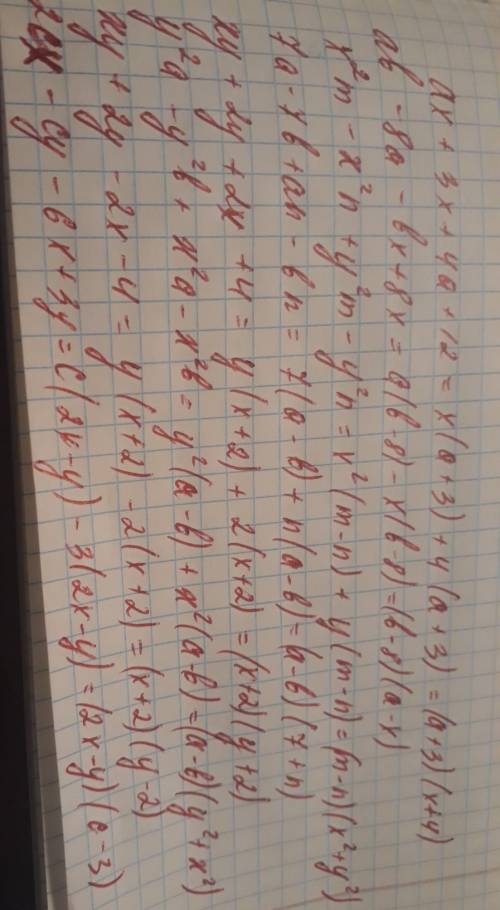 ax + 3x + 4a + 12 = x(a+3) + 4(a+3) = (a+3)(x+4)
ab - 8a - bx + 8x = a(b-8) - x(b-8) = (b-8)(a-x)
x²m - x²n + y²m - y²n = x²(m-n) + y(m-n) = (m-n)(x²+y²)
7a - 7b + an - bn = 7(a-b) + n(a-b) = (a-b)(7+n)
xy + 2y + 2x + 4 = y(x+2) + 2(x+2) = (x+2)(y+2)
y²a - y²b + x²a - x²b = y²(a-b) + x²(a-b) = (a-b)(y²+x²)
xy + 2y - 2x - 4 = y(x+2) - 2(x+2) = (x+2)(y-2)
2cx - cy - 6x + 3y = c(2x-y) - 3(2x-y) = (2x-y)(c-3)